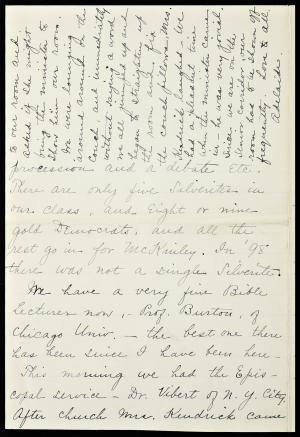 procession and a debate etc.
There are only five Silverites in
our class, and Eight or nine
gold Democrats, and all the
rest go in for McKinley. In '98
there was not a single Silverite.
We have a very fine Bible
Lecturer now, - Prof. Burton, of
Chicago Univ. - the best one there
has been since I have been here -
This morning we had the Epis-
copal service - Dr. Vibert of N.Y. City.
After church Mrs. Kendrick came
to our room and
asked if she might
bring the minister to
show him our room.
We were lounging
around on the
couch and immediately
without saying a word
we all jumped up and
began to straighten up
the room and fix
the couch pillows. Mrs.
Kendrick laughed. We
had a pleasant time
when the minister came
in he was very jovial.
Since we are on the
Senior Corridor our
room has to be shown off
frequently. Love to all
Adelaide.